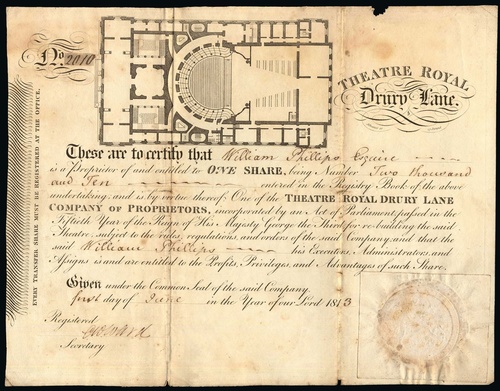 No. 2010
THEATRE ROYAL
Drury Lane.
EVERY TRANSFER SHARE MUST BE REGISTERED AT THE OFFICE.
These are to certify that William Phillips Esquire
is a Proprietor of and entitled to ONE SHARE, being Number Two thousand
and Ten entered in the Registry Book of the above
undertaking, and is by virtue thereof, One of the THEATRE ROYAL DRURY LANE
COMPANY OF PROPRIETORS, incorporated by an Act of Parliament passed in the
Fiftieth Year of the Reign of His Majesty George the Third for re-building the said
Theatre, subject to the rules, regulations, and orders of the said Company, and that the
said William Phillips his Executors, Administrators, and
Assigns is and are entitled to the Profits, Privileges, and Advantages of such Share.
Given under the Common Seal of the said Company.
first day of June in the Year of our Lord 1813
Registered
Secretary